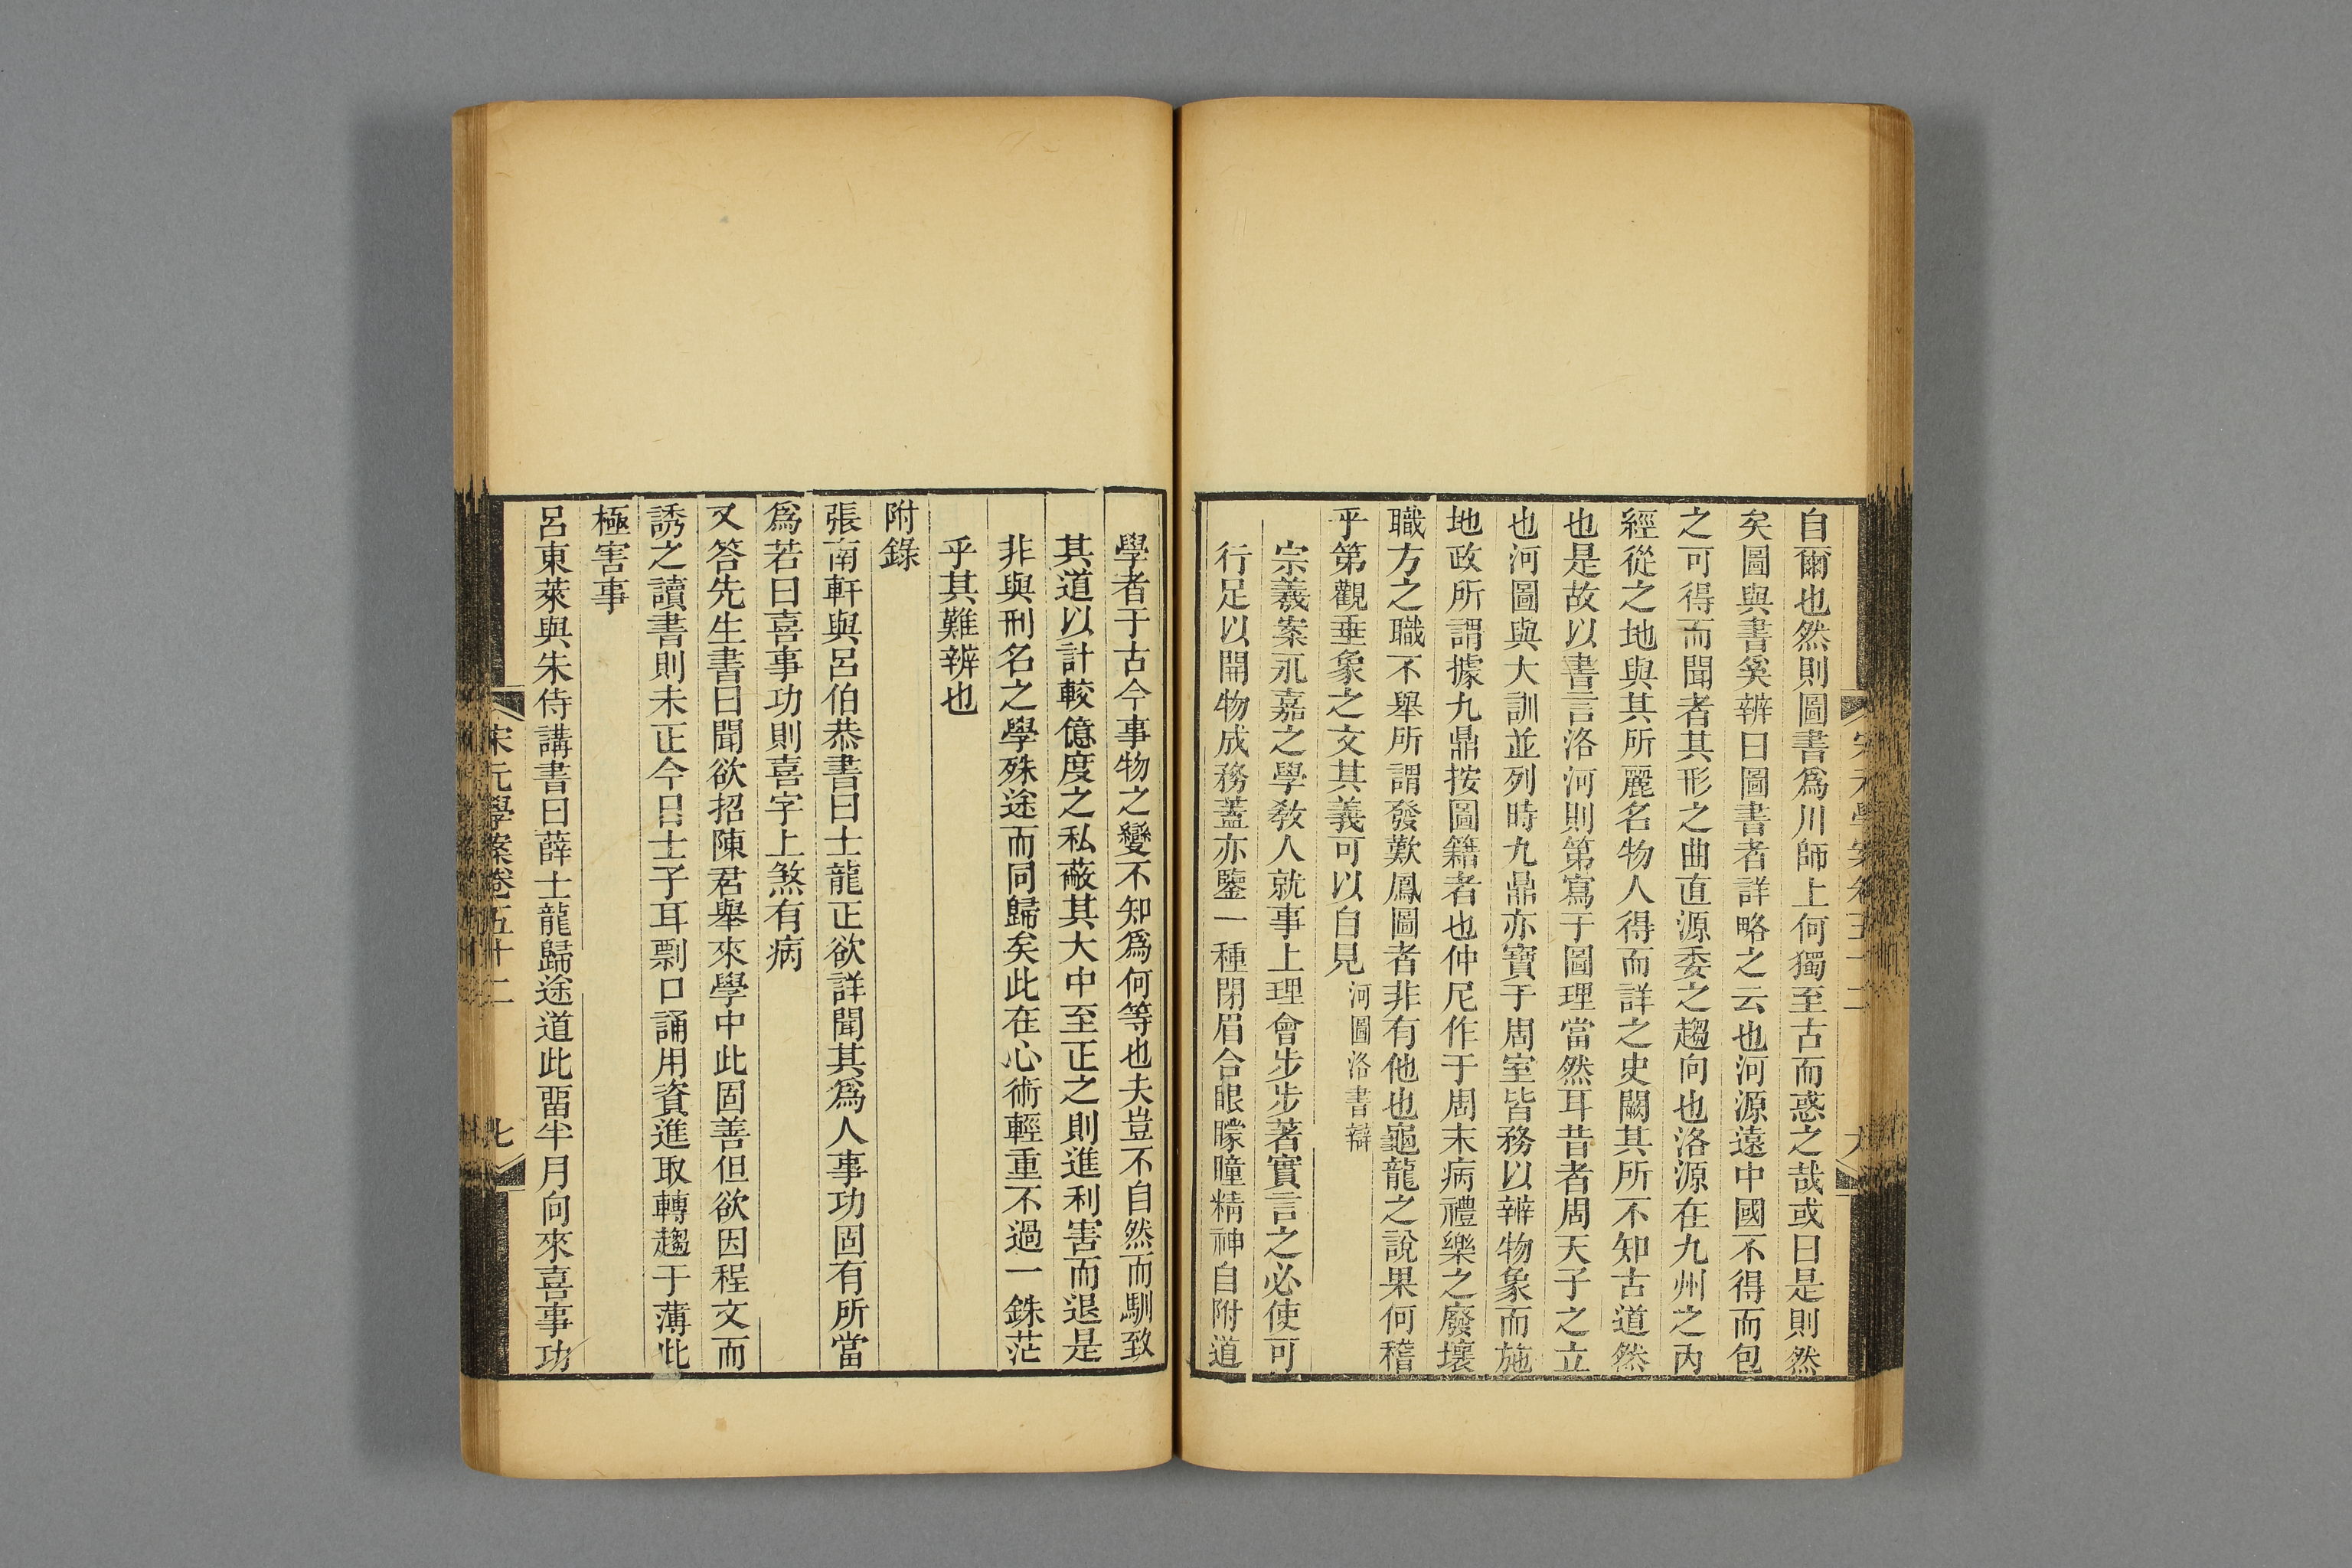 自爾也然則圖書爲川師上何獨至古而惑之哉或曰是則然
矣圖與書奚辨曰圖書者詳略之云也河源遠中國不得而包
之可得而聞者其形之曲直源委之趨向也洛源在九州之内
經從之地與其所麗名物人得而詳之史闕其所不知古道然
也是故以書言洛河則第寫于圖理當然耳昔者周天子之立
也河圖與大訓並列時九鼎亦寶于周室皆務以辨物象而施
地政所謂據九鼎按圖籍者也仲尼作于周末病禮樂之廢壞
職方之職不舉所謂發歎鳳圖者非有他也龜龍之說果何稽
乎第觀垂象之文其義可以自見河圖洛書辯
宗羲案永嘉之學敎人就事上理會步步著實言之必使可
行足以開物成務蓋亦鑒一種閉眉合眼矇瞳精神自附道
學者于古今事物之變不知爲何等也夫豈不自然而馴致
其道以計較億度之私蔽其大中至正之則進利害而退是
非與刑名之學殊途而同歸矣此在心術輕重不過一銖茫
乎其難辨也
附錄
張南軒與呂伯恭書曰士龍正欲詳聞其爲人事功固有所當
爲若曰喜事功則喜字上煞有病
又答先生書曰聞欲招陳君舉來學中此固善但欲因程文而
誘之讀書則未正今日士子耳剽口誦用資進取轉趨于薄此
極害事
呂東萊與朱侍講書曰薛士龍歸途道此畱半月向來喜事功
宋元學案卷五十二